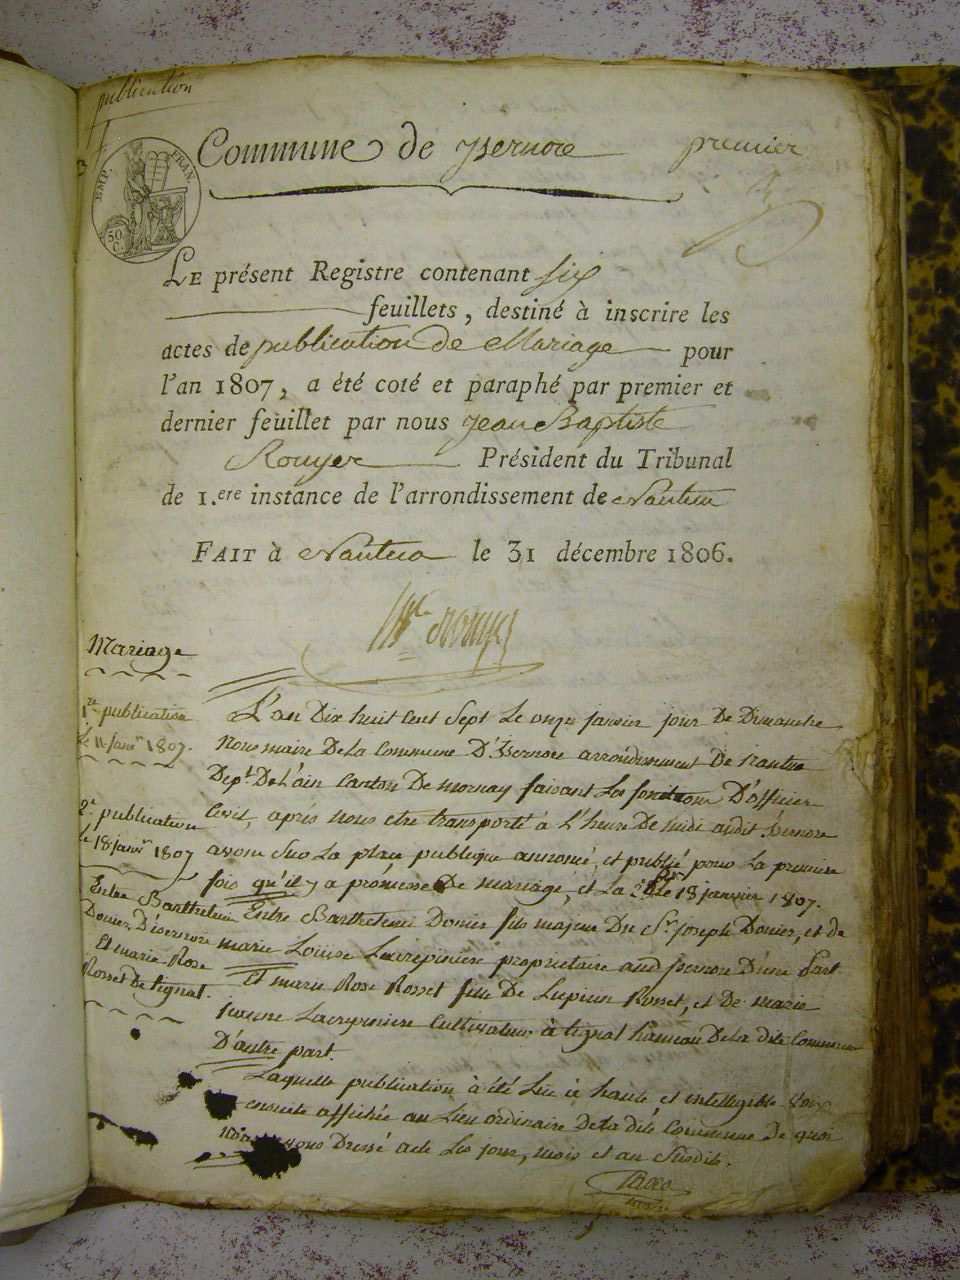 publication
EMP. FRAN.
50 C.
Commune de ysernore premier
LE présent Registre contenant six
feuillets, destiné à inscrire les
actes de publication de Mariage pour
l'an 1807, a été coté et paraphé par premier et
dernier feuillet par nous Jean Baptiste
Rouyer Président du Tribunal
de 1.ere instance de l'arrondissement de Nantua
FAIT à Nantua le 31 décembre 1806.
Mariage
1re publication
le 11 janvr 1807.
2e publication
le 18 janvr 1807
Entre Barthelemi
Donier D'isernore
Et marie Rose
Rosset De tignat.
L'an Dix huit cent Sept Le onze janvier jour De Dimanche
Nous maire De La Commune D'Isernore arrondissement De nantua
Dept. De L'ain Canton De mornay faisant Les fonctions D'officier
Civil, après nous etre transporté à L'heure De midi audit Isernore
avons Sur La place publique annoncé, et publié pour La premiere
fois qu'il y a promesse De mariage, et La 2e le 18 janvier 1807.
Entre Barthelemi Donier fils majeur Du Sr. Joseph Donier, et de
marie Louise Lacrepiniere proprietaire aud Isernore D'une part
Et marie Rose Rosset fille De Lupicin Rosset, et De marie
Lacrepiniere Cultivateurs à tignat hameau De La dite Commune
D'autre part.
Laquelle publication à été Lue à haute et intelligible Voix
ensuite affichée au Lieu ordinaire De La dite Commune De quoi
nous Dressé acte Les jour, mois et an Susdits.